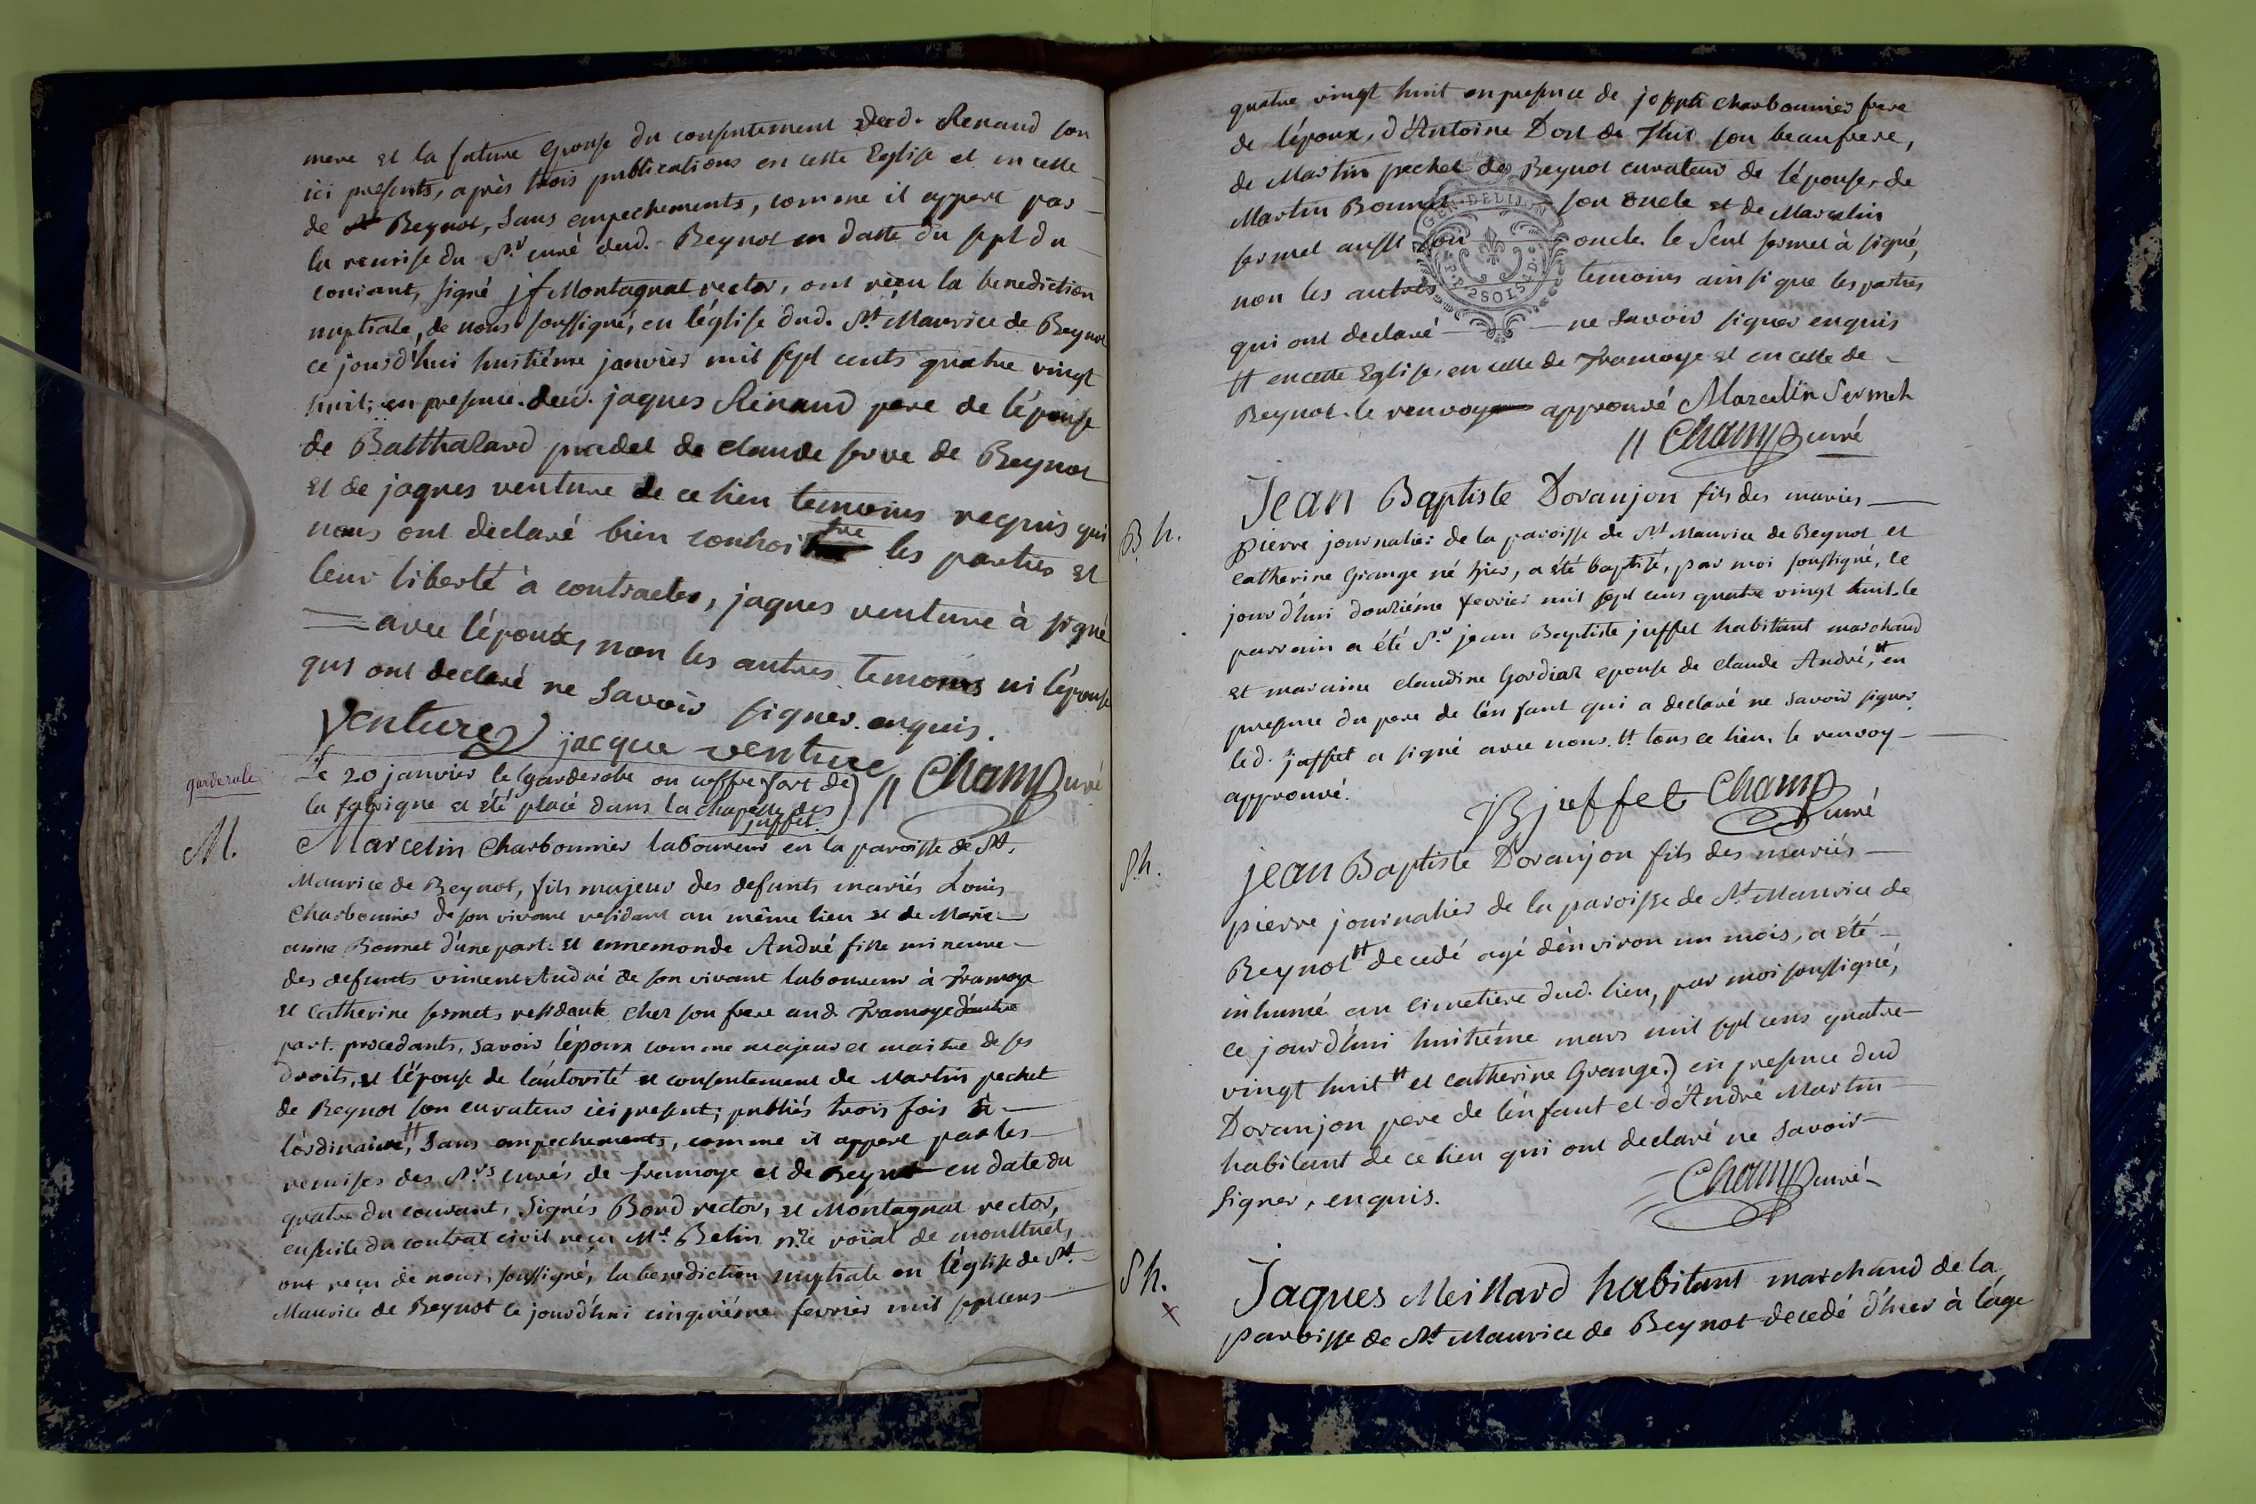 mere et la future epouse du consentement dud. Renaud son
ici presents, après trois publications en cette Eglise et en celle
de Beynot, sans empechements, comme il appert par
la remise du Sr curé dud. Beynot en datte du sept du
courant, signé jf Montagnat rector, ont reçu la benediction
nuptiale, de nous soussigné, en l'église dud. St Maurice de Beynot
ce jourd'hui huitiéme janvier mil sept cents quatre vingt
huit; en presence dud. jaques Renaud pere de l'épouse
de Balthalard pradel de claude serve de Beynot
et de jaques venture de ce lieu temoins requis qui
nous ont declaré bien connoitre les parties et
leur liberté à contracter, jaques venture à signé
avec l'époux, non les autres temoins ni l'épouse
qui ont declaré ne savoir signer enquis.
Venture jacque venture
garderobe
Le 20 janvier le garderobe ou coffre fort de
la fabrique a été placé dans la chapelle des
juffet.
Champ curé
M.
Marcelin Charbonnier laboureur en la paroisse de St.
Maurice de Beynot, fils majeur des defunts mariés Louis
Charbonnier de son vivant residant au même lieu et de Marie
anne Bonnet d'une part. et ennemonde André fille mineure
des defunts vincent André de son vivant laboureur à tramoye
et Catherine sermet, residante chez son frere aud. tramoye d'autre
part. procedants, savoir l'époux comme majeur et maitre de ses
droits, et l'épouse de l'autorité et consentement de Martin pechet
de Beynot son curateur ici present; publiés trois fois à
l'ordinaire, tt sans empechements, comme il appert par les
remises des Srs curés de tramoye et de Beynot en date du
quatre du courant, signés Bord rector, et Montagnat rector,
ensuite du contrat civil reçu Me Belin nre roïal de montluel,
ont reçu de nous, soussigné, la benediction nuptiale en l'église de St.
Maurice de Beynot ce jourd'hui cinquiéme fevrier mil sept cens
quatre vingt huit en presence de joseph charbonnier frere
de l'époux, d'Antoine Dost de Thil son beaufrere,
de Martin pechet de Beynot curateur de l'épouse, de
Martin Bonnet son oncle et de Marcelin
sermet aussi son oncle. le seul sermet à signé,
non les autres temoins ainsi que les parties
qui ont declaré ne savoir signer enquis
tt en cette Eglise, en celle de tramoye et en celle de
Beynot. le renvoy approuvé Marcelin Sermet
Champ curé
B. h.
Jean Baptiste Doranjon fils des mariés
pierre journalier de la paroisse de St Maurice de Beynot et
catherine Grange né hier, a été baptisé, par moi soussigné, le
jourd'hui douziéme fevrier mil sept cens quatre vingt huit. le
parrain a été Sr jean Baptiste juffet habitant marchand
et maraine claudine Gordiat epouse de claude André, tt en
presence du pere de l'enfant qui a declaré ne savoir signer
led. juffet a signé avec nous. tt tous ce lieu. le renvoy
approuvé.
JB juffet Champ curé
S. h.
jean Baptiste Doranjon fils des mariés
pierre journalier de la paroisse de St. Maurice de
Beynot tt decedé agé d'environ un mois, a été
inhumé au cimetiere dud. lieu, par moi soussigné,
ce jourd'hui huitiéme mars mil sept cens quatre
vingt huit tt et catherine Grange.) en presence dud
Doranjon pere de l'enfant et d'André Martin
habitant de ce lieu qui ont declaré ne savoir
signer, enquis.
Champ curé
S h.
Jaques Meillard habitant marchand de la
paroisse de St Maurice de Beynot decedé d'hier à l'age